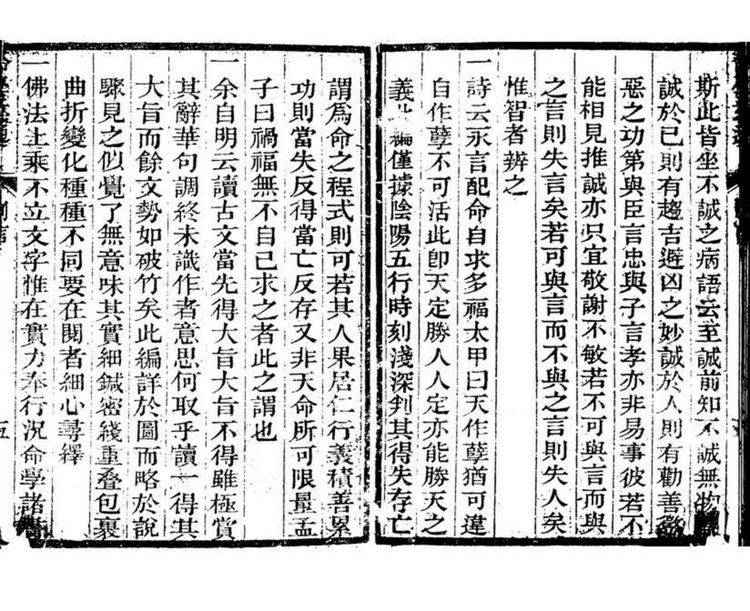 斯此皆坐不誠之病語云至誠前知不誠無物
誠於己則有趨吉避凶之妙誠於人則有勸善
惡之功第與臣言忠與子言孝亦非易事彼若不
能相見推誠亦只宜敬謝不敏若不可與言而與
之言則失言矣若可與言而不與之言則失人矣
惟智者辨之
一詩云永言配命自求多福太甲曰天作孽猶可違
自作孽不可活此卽天定勝人人定亦能勝天之
義此編僅據陰陽五行時刻淺深判其得失存亡
謂爲命之程式則可若其人果居仁行義積善累
功則當失反得當亡反存又非天命所可限量孟
子曰禍福無不自己求之者此之謂也
一余自明云讀古文當先得大旨大旨不得雖極賞
其辭華句調終未識作者意思何取乎讀一得其
大旨而餘文勢如破竹矣此編詳於圖而略於說
驟見之似覺了無意味其實細鍼密綫重叠包裹
曲折變化種種不同要在閱者細心尋繹
一佛法上乘不立文字惟在實力奉行況命學諸書
五